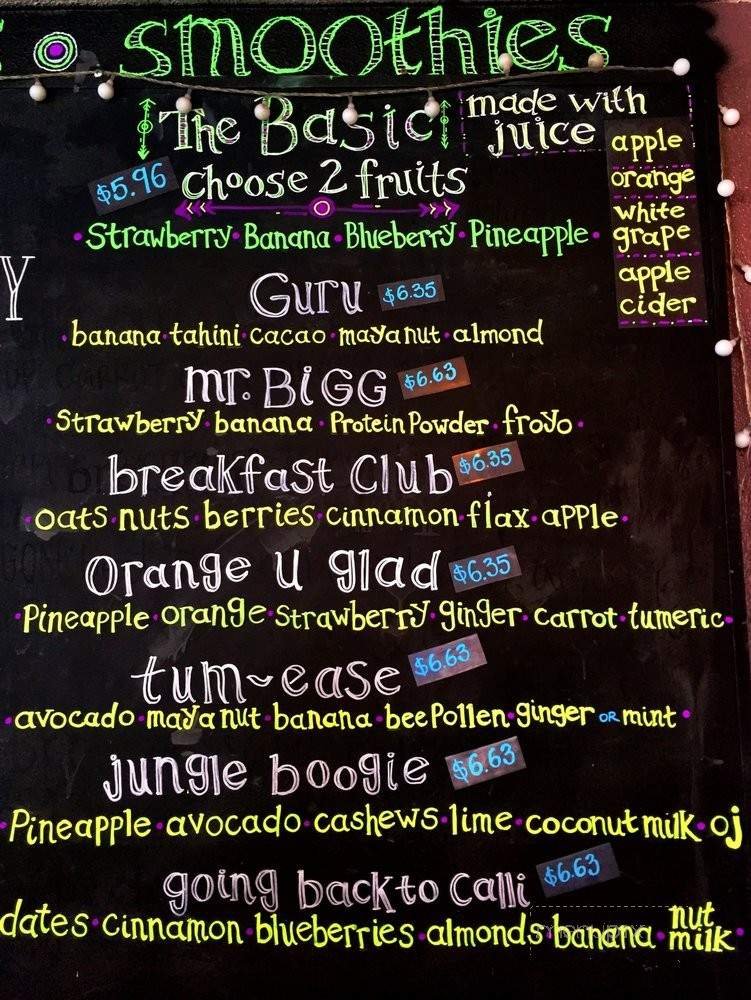 smoothies
The Basic
made with
juice
apple
orange
white
grape
apple
cider
$5.96 choose 2 fruits
Strawberry • Banana • Blueberry • Pineapple
Y
Guru $6.35
banana • tahini • cacao • maya nut • almond
mr. BiGG $6.63
Strawberry • banana • Protein Powder • froyo
breakfast Club $6.35
oats • nuts • berries • cinnamon • flax • apple
Orange u glad $6.35
Pineapple • orange • Strawberry • ginger • carrot • tumeric
tum~ease $6.63
avocado • maya nut • banana • bee Pollen • ginger OR mint
jungle boogie $6.63
Pineapple • avocado • cashews • lime • coconut milk • oj
going back to Calli $6.63
dates • cinnamon • blueberries • almonds • banana • nut milk